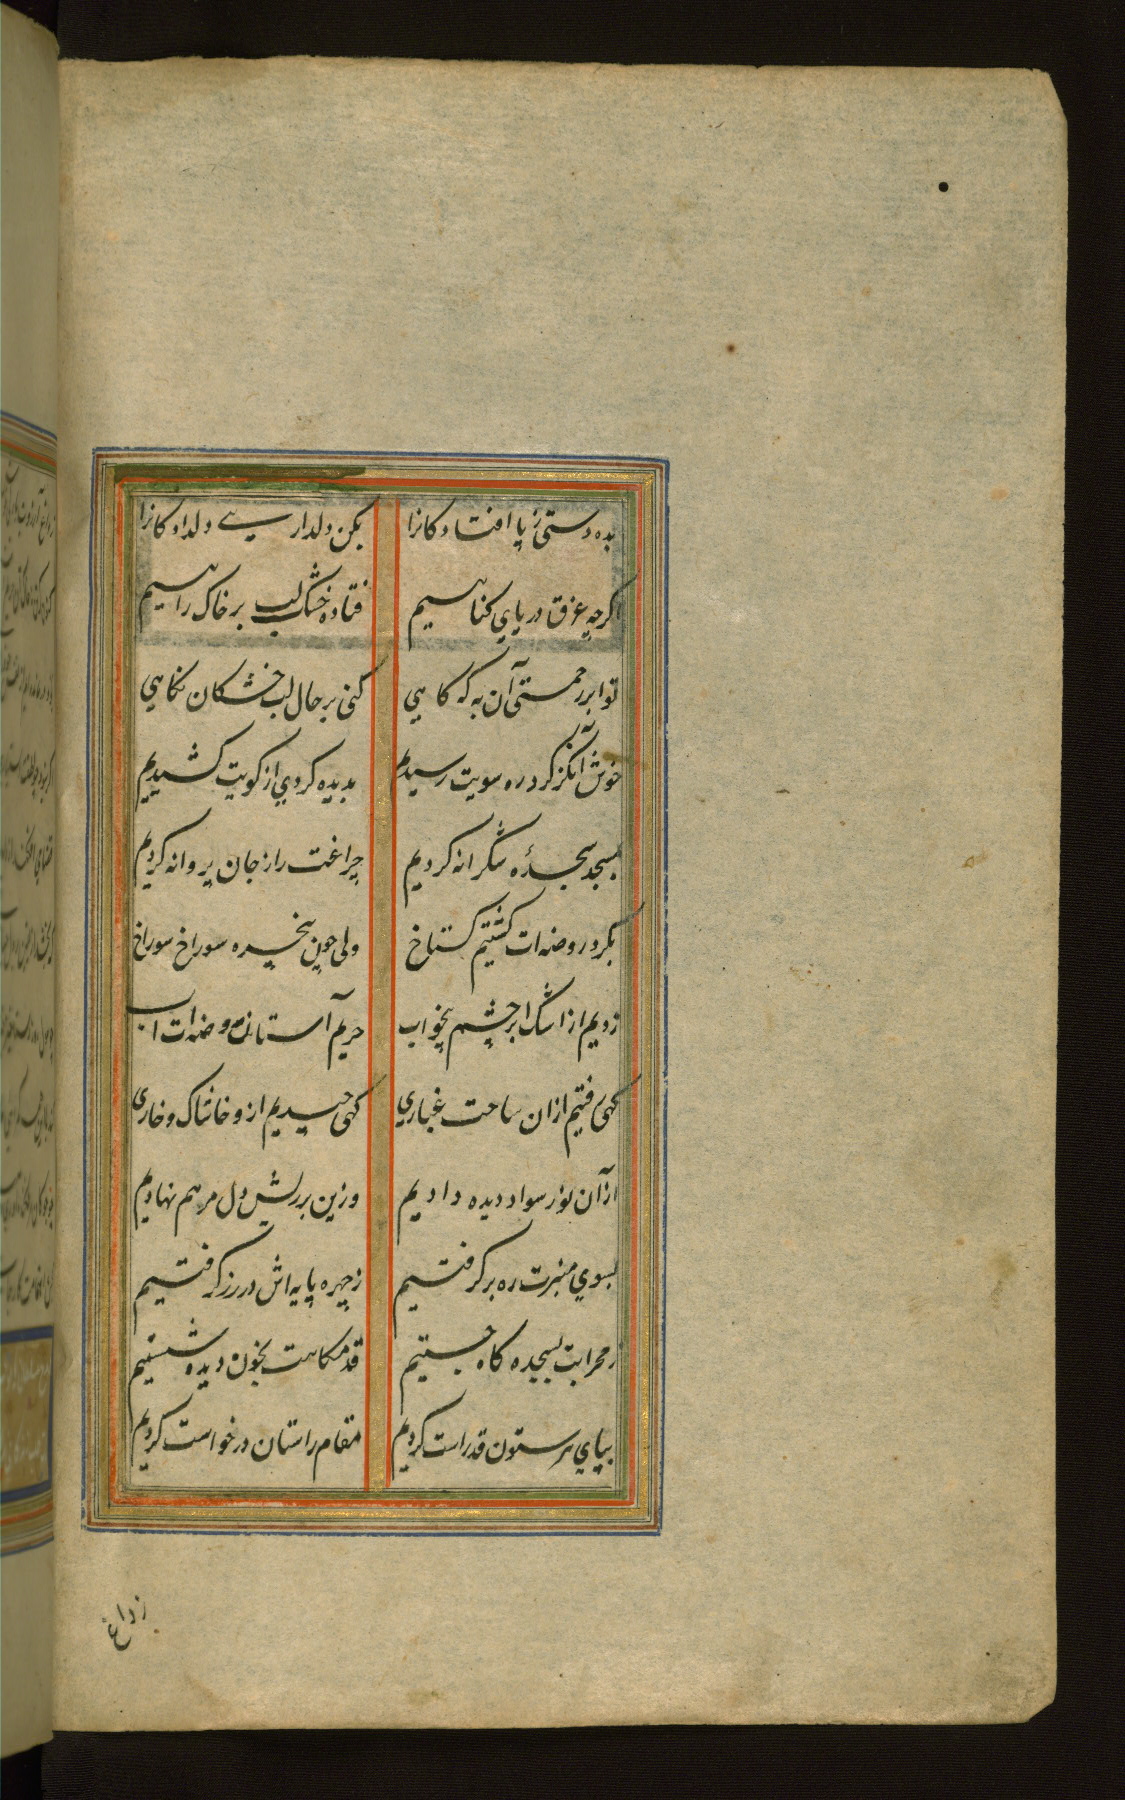 بده دستی ز پا افتادکانرا بکن دلداریی دلدادکانرا
اکرچه غرق دریای کناهیم فتاده خشک لب بر خاک راهیم
تو ابر رحمتی آن به که کاهی کنی بر حال لب خشکان نکاهی
خوش آنکز کرد ره سویت رسیدیم بدیده کردی از کویت کشیدیم
بمسجد سجدهٔ شکرانه کردیم چراغت را ز جان پروانه کردیم
بکرد روضه‌ات کشتیم کستاخ ولی چون پنجره سوراخ سوراخ
زدیم از اشک ابر چشم بیخواب حریم آستان روضه‌ات آب
کهی رفتیم ازان ساحت غباری کهی چیدیم ازو خاشاک و خاری
ازآن نور سواد دیده دادیم وزین بر ریش دل مرهم نهادیم
بسوی منبرت ره بر کرفتیم ز چهره پایه‌اش در زر کرفتیم
ز محرابت بسجده کاه جستیم قدمکاهت بخون دیده شستیم
بپای هر ستون قد راست کردیم مقام راستان درخواست کردیم
ز داغ